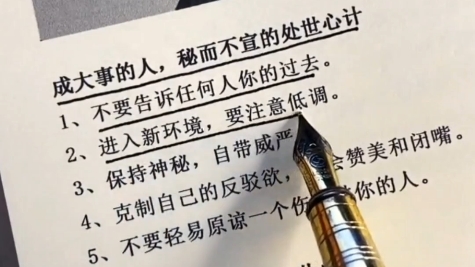 成大事的人，秘而不宣的处世心计
1、不要告诉任何人你的过去。
2、进入新环境，要注意低调。
3、保持神秘，自带威严
4、克制自己的反驳欲，会赞美和闭嘴。
5、不要轻易原谅一个伤你的人。